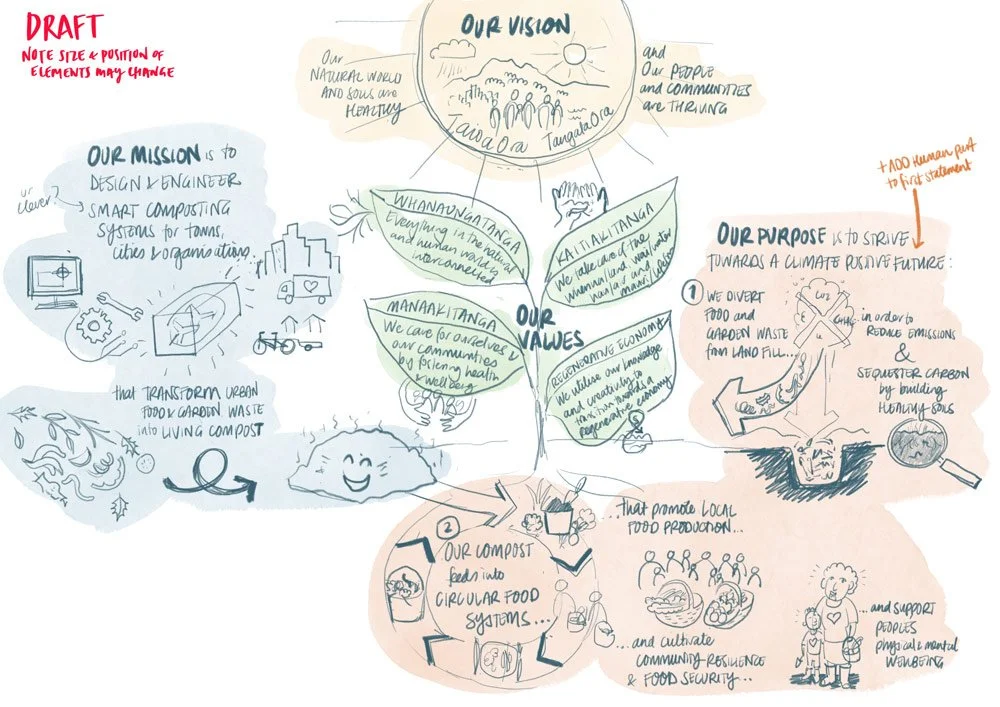 DRAFT
NOTE SIZE & POSITION OF
ELEMENTS MAY CHANGE
OUR VISION
Our
NATURAL WORLD
AND SOILS are
HEALTHY
and
Our PEOPLE
and COMMUNITIES
are THRIVING
Taiao Ora
Tangata Ora
OUR MISSION is to
DESIGN & ENGINEER
or
clever?
SMART COMPOSTING
SYSTEMS for towns,
cities & organisations...
that TRANSFORM URBAN
FOOD & GARDEN WASTE
into LIVING COMPOST
WHANAUNGATANGA
Everything in the natural
and human world is
interconnected
KAITIAKITANGA
We take care of the
whenua/land, wai/water
and
MANAAKITANGA
We care for ourselves &
our communities
by fostering health
& wellbeing
OUR
VALUES
REGENERATIVE ECONOMY
We utilise our knowledge
and creativity to
transition towards a
regenerative economy
+ ADD Human part
to first statement
OUR PURPOSE is to STRIVE
TOWARDS A CLIMATE POSITIVE FUTURE:
1
WE DIVERT
FOOD and
GARDEN WASTE
from LAND FILL...
CO2
...in order to
REDUCE EMISSIONS
&
SEQUESTER CARBON
by building
HEALTHY SOILS
2
OUR COMPOST
feeds into
CIRCULAR FOOD
SYSTEMS...
...that promote LOCAL
FOOD PRODUCTION...
...and cultivate
COMMUNITY RESILIENCE
& FOOD SECURITY...
...and SUPPORT
PEOPLES
physical & mental
WELLBEING